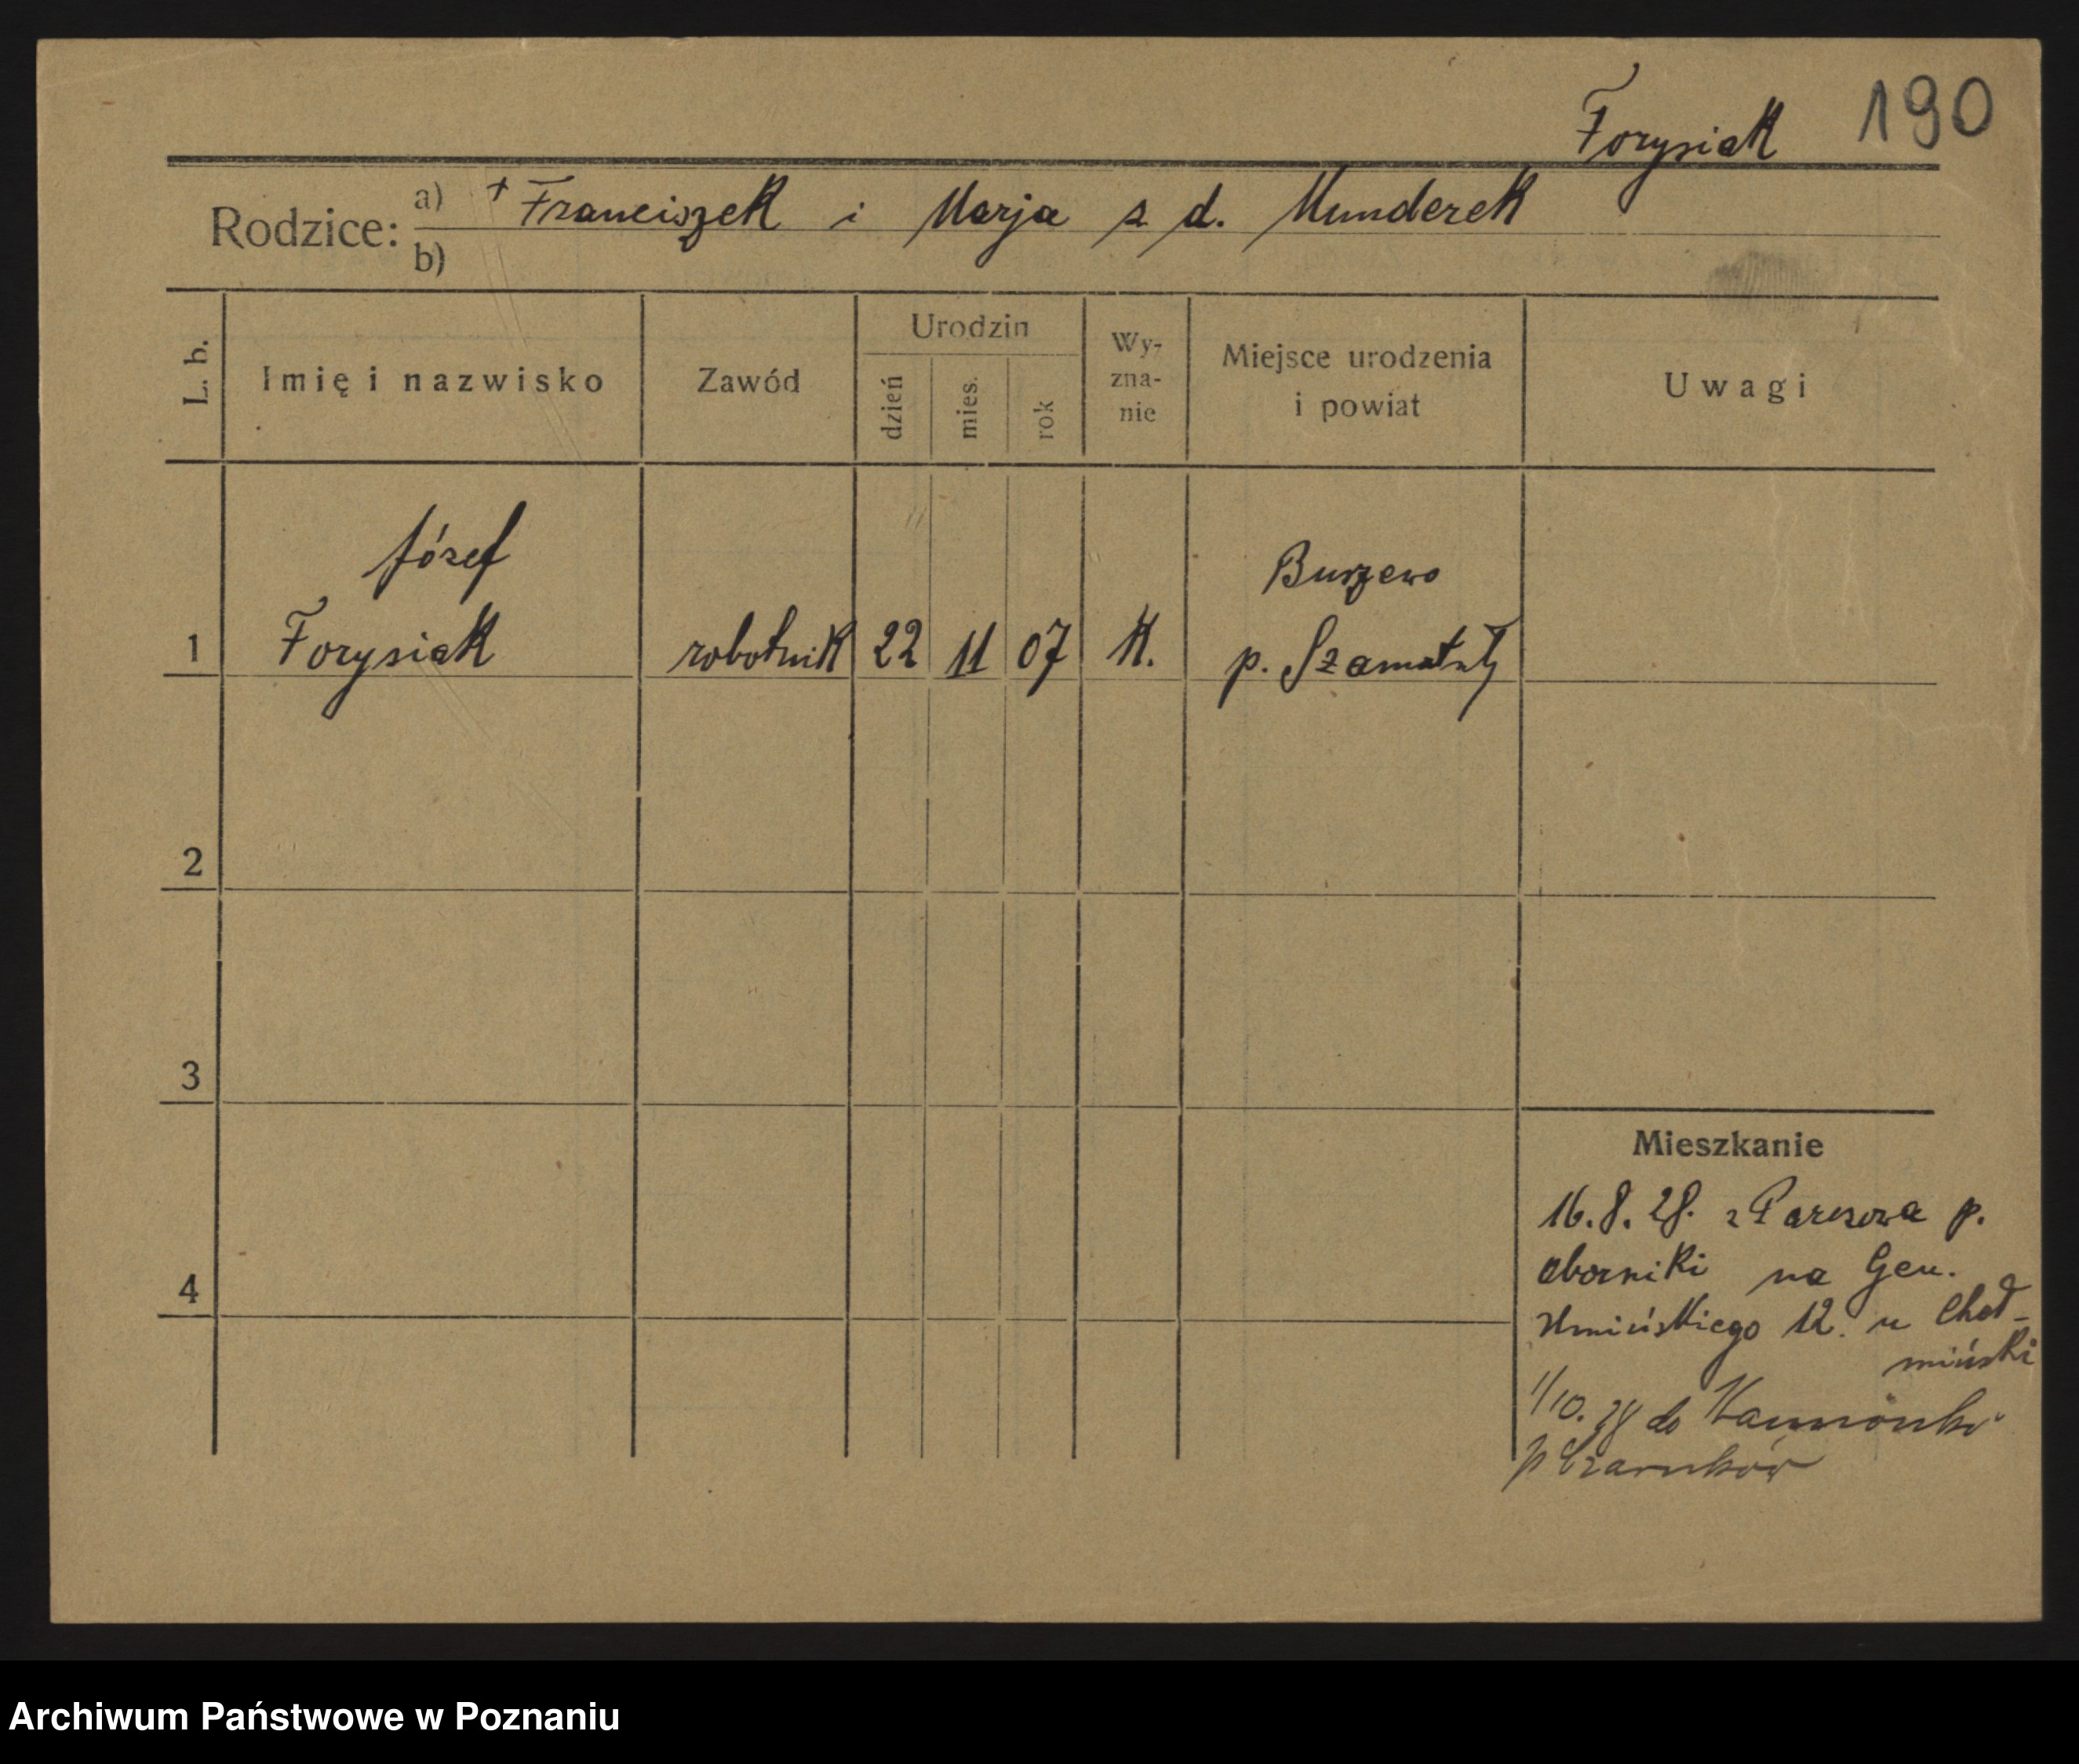 Forysiak 190
Rodzice: a) † Franciszek i Marja z d. Munderek
b)
L. b. Imię i nazwisko Zawód Urodzin dzień mies. rok Wy-zna-nie Miejsce urodzenia i powiat Uwagi
Józef Buszewo
1 Forysiak robotnik 22 11 07 K. p. Szamotuły
2
3
4
Mieszkanie
16.8.28. z p.
Oborniki na Gen.
Umińskiego 12. u Choł-
miński
1/10. 28 do
p Czarnków
Archiwum Państwowe w Poznaniu